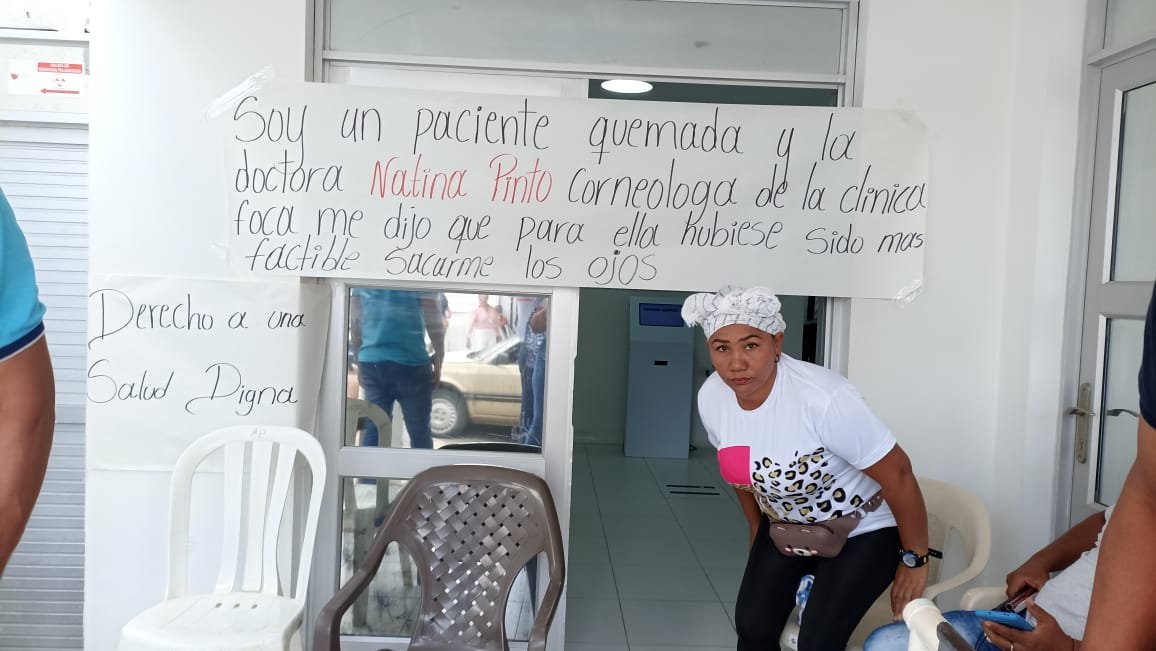 Soy un paciente quemada y la
doctora Natina Pinto Corneologa de la clinica
foca me dijo que para ella hubiese sido mas
factible Sacarme los ojos
Derecho a una
Salud Digna